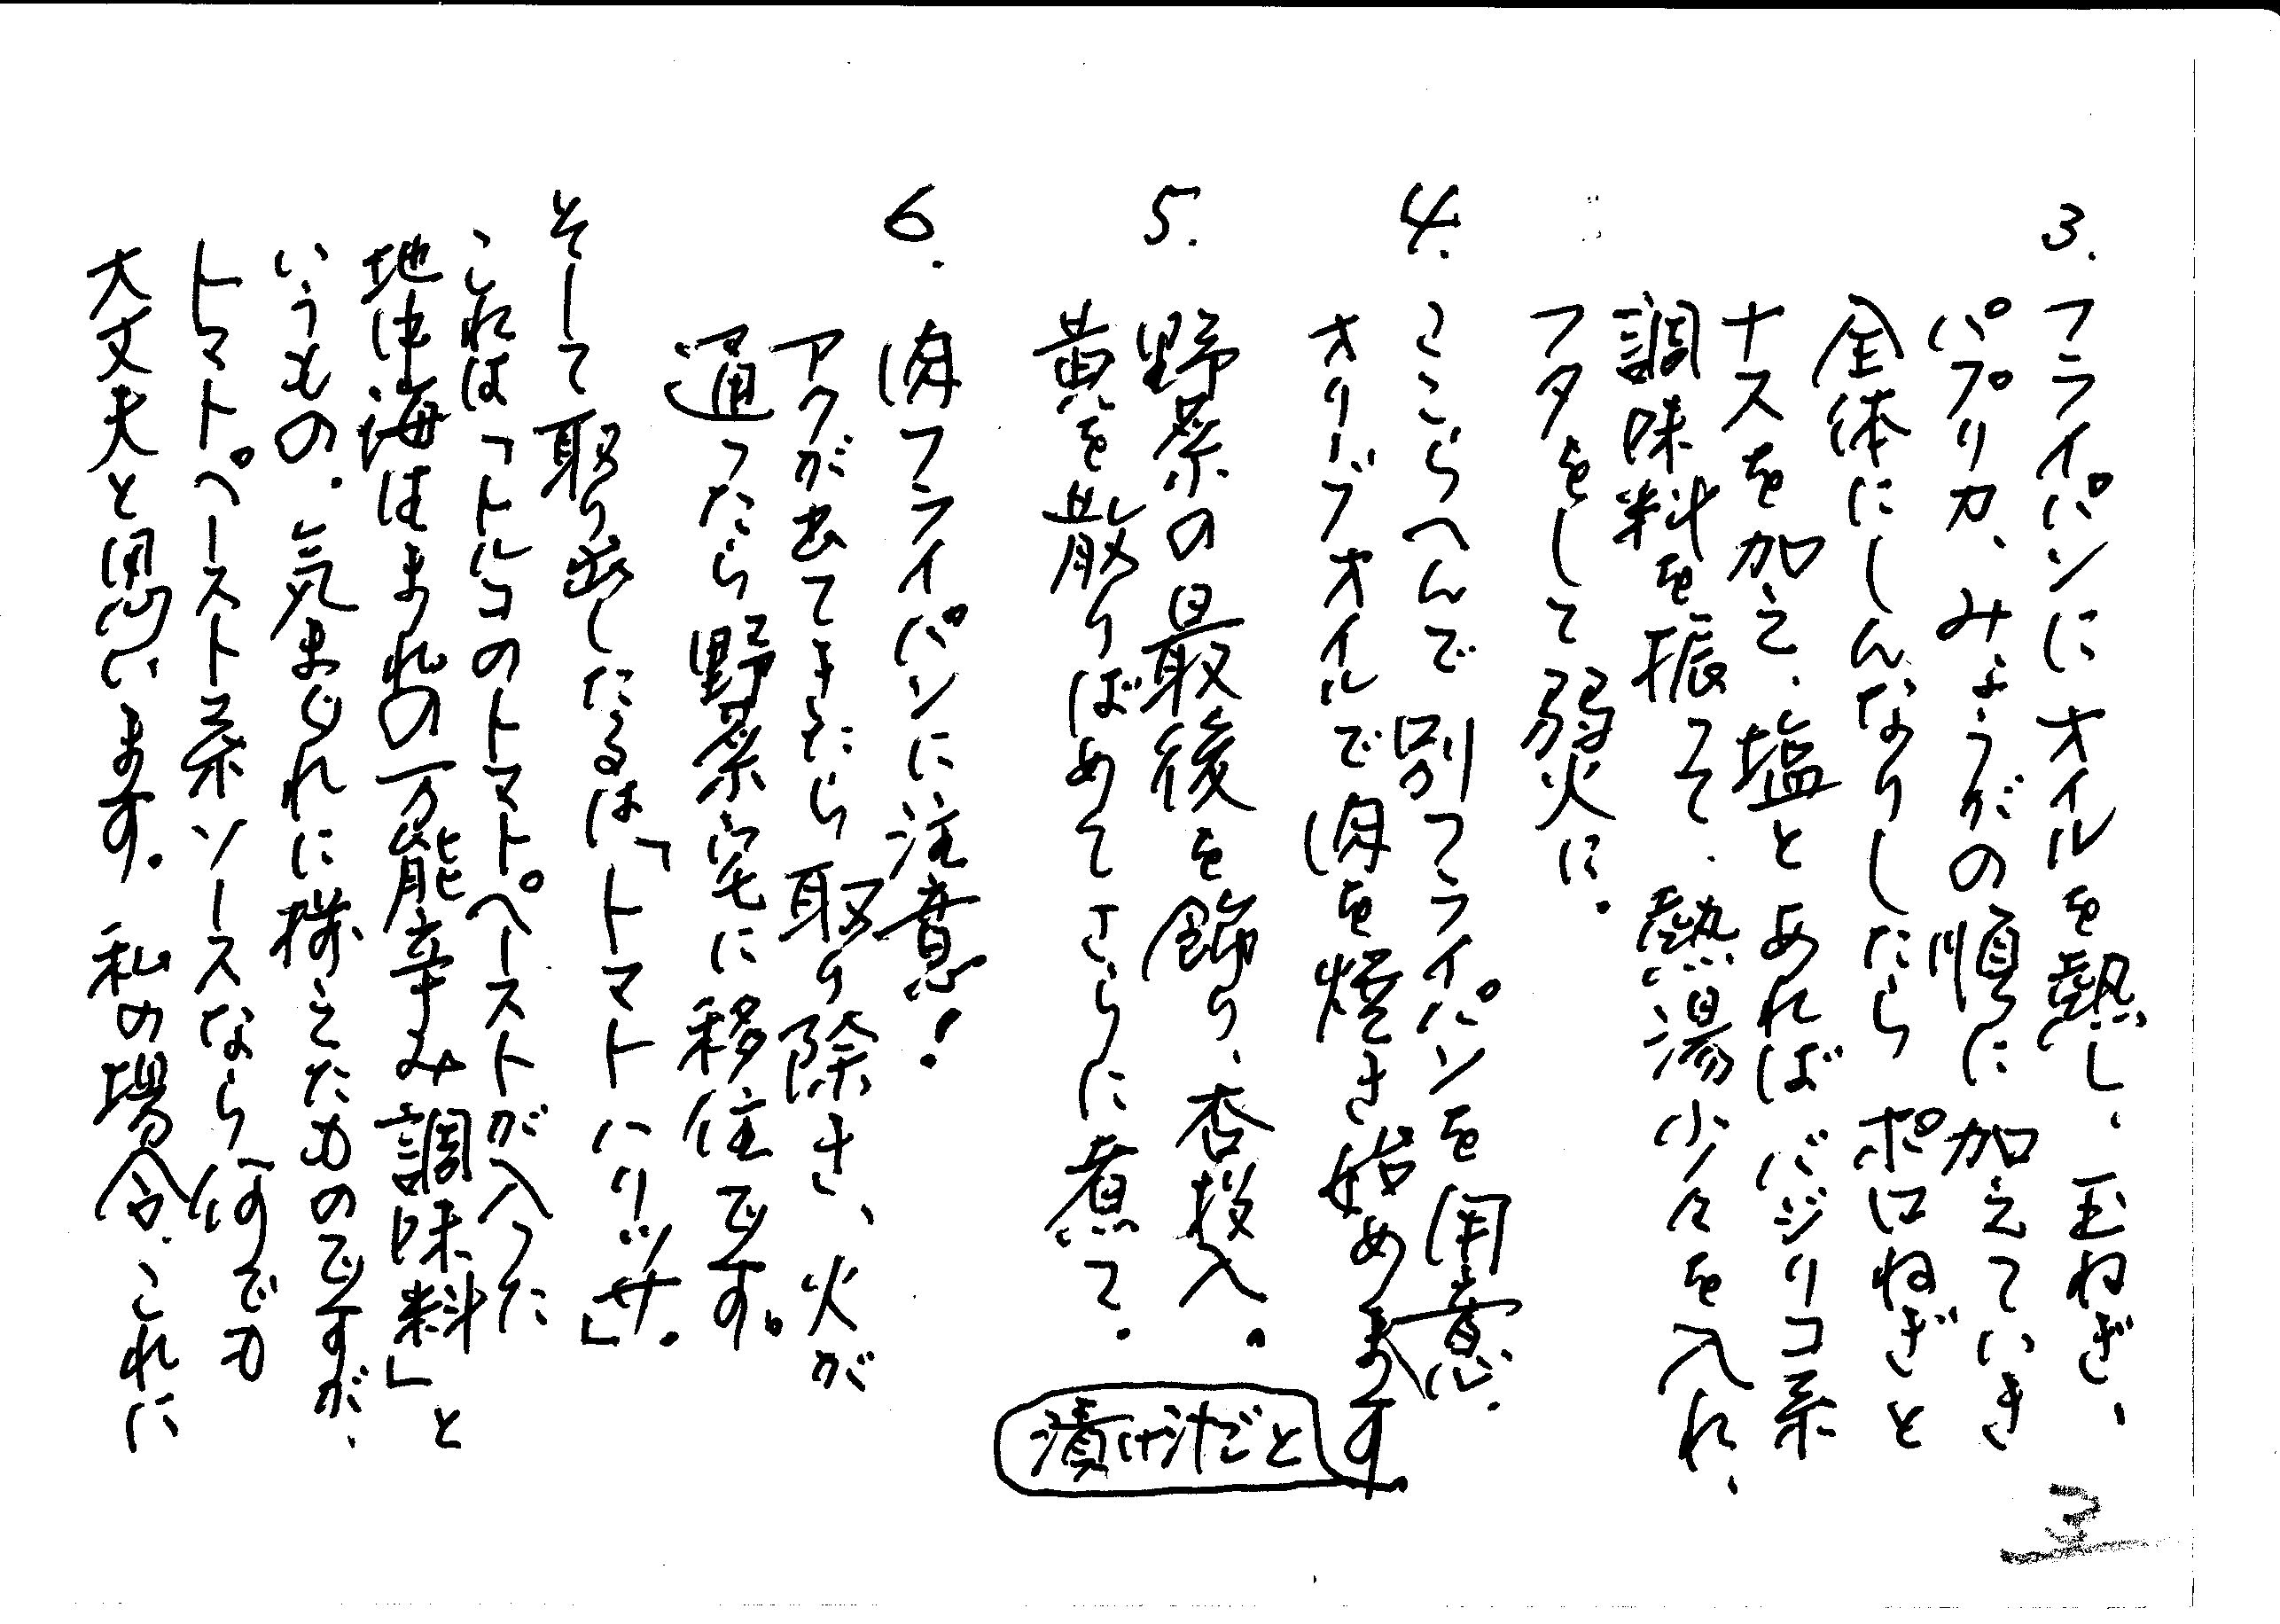 3. フライパンにオイルを熱し、玉ねぎ、
パプリカ、みょうがの順に加えていき
全体にしんなりしたらポロねぎと
ナスを加え、塩とあればバジリコ系
調味料を振って、熱湯少々を入れ、
フタをして弱火に。
4. ここらへんで別フライパンを用意。
オリーブオイルで肉を焼き始めます。
漬け汁ごと
5. 野菜の最後を飾り、杏投入。
黄を散りばめてさらに煮て。
6. 肉フライパンに注意!
アクが出てきたら取り除き、火が
通ったら野菜宅に移住です。
そして取り出したるは、「トマトハリッサ」
これは「トルコのトマトペーストが入った
地中海はまれの万能辛み調味料」と
いうもの。気まぐれに揃えたものですが、
トマトペースト系ソースなら何でも
大丈夫と思います。私の場合、これに
3